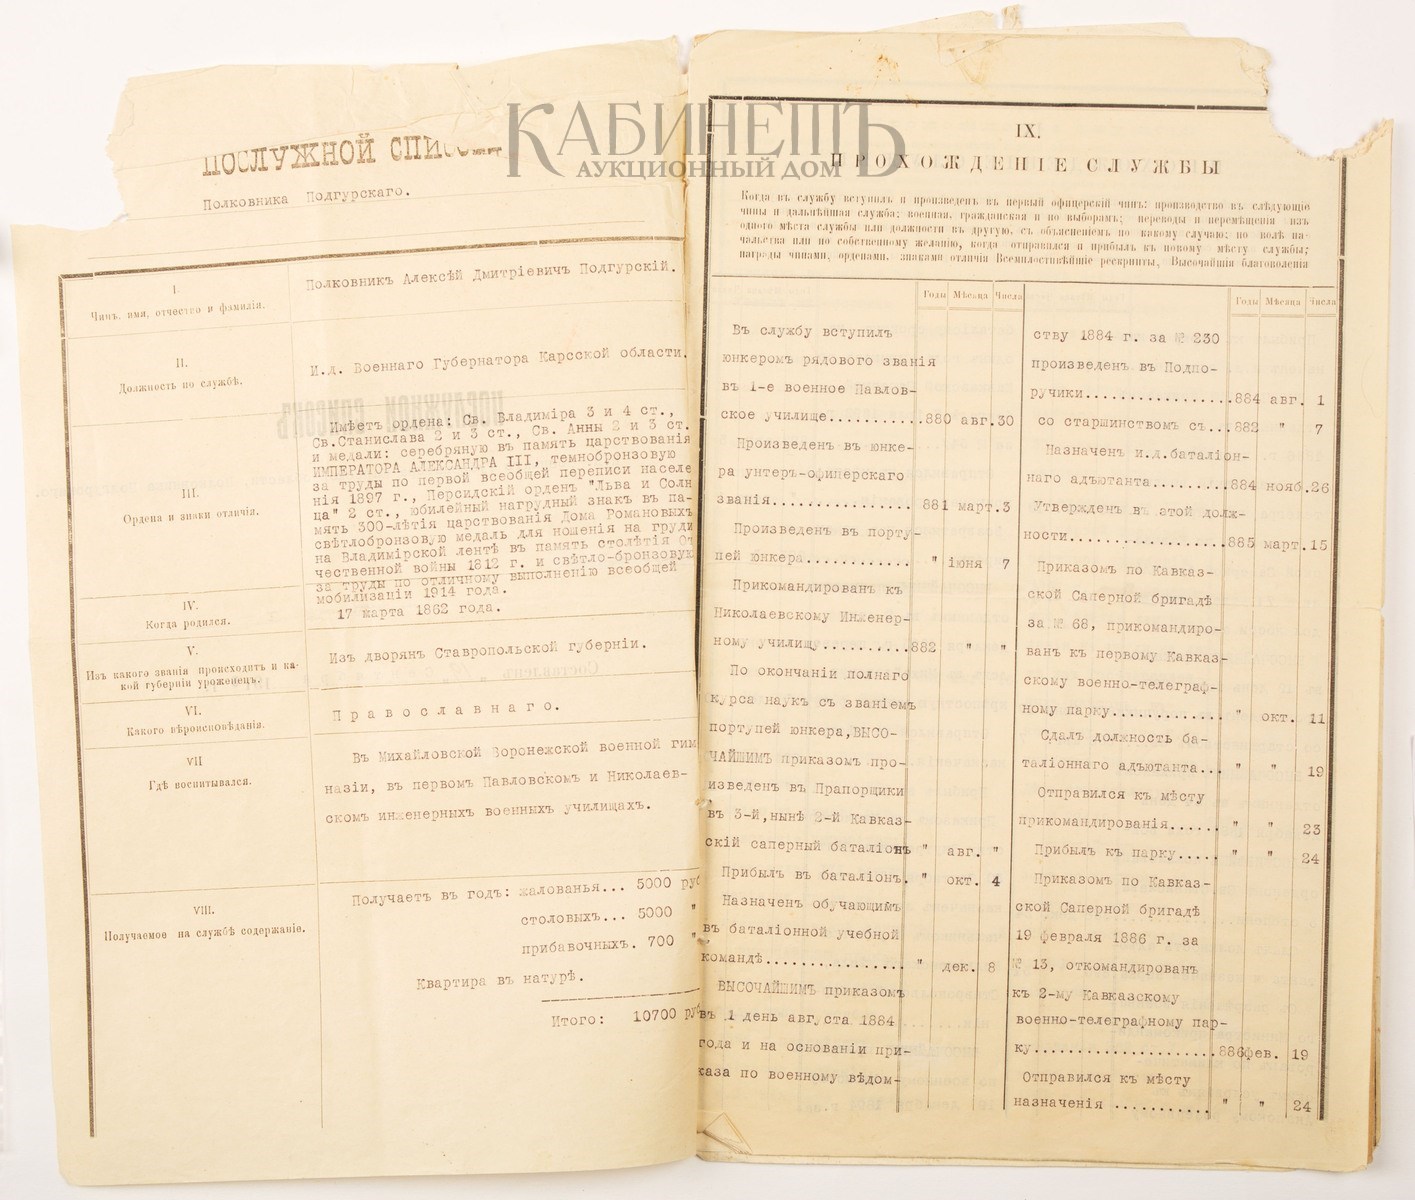 КАБИНЕТЪ
АУКЦИОННЫЙ ДОМ
ПОСЛУЖНОЙ СПИСОКЪ
Полковника Подгурскаго.
I.
Чинъ, имя, отчество и фамилія.
Полковникъ Алексѣй Дмитріевичъ Подгурскій.
II.
Должность по службѣ.
И.д. Военнаго Губернатора Карсской области.
III.
Ордена и знаки отличія.
Имѣетъ ордена: Св. Владиміра 3 и 4 ст.,
Св.Станислава 2 и 3 ст., Св. Анны 2 и 3 ст.
и медали: серебряную въ память царствованія
ИМПЕРАТОРА АЛЕКСАНДРА III, темнобронзовую
за труды по первой всеобщей переписи населе
нія 1897 г., Персидскій орденъ "Льва и Солн
ца" 2 ст., юбилейный нагрудный знакъ въ па-
мять 300-лѣтія царствованія Дома Романовыхъ
свѣтлобронзовую медаль для ношенія на груди
на Владимірской лентѣ въ память столѣтія От
чественной войны 1812 г. и свѣтло-бронзовую
за труды по отличному выполненію всеобщей
мобилизаціи 1914 года.
IV.
Когда родился.
17 марта 1862 года.
V.
Изъ какого званія происходитъ и ка-
кой губерніи уроженецъ.
Изъ дворянъ Ставропольской губерніи.
VI.
Какого вѣроисповѣданія.
Православнаго.
VII
Гдѣ воспитывался.
Въ Михайловской Воронежской военной гим
назіи, въ первомъ Павловскомъ и Николаев-
скомъ инженерныхъ военныхъ училищахъ.
VIII.
Получаемое на службѣ содержаніе.
Получаетъ въ годъ: жалованья... 5000 руб
столовыхъ... 5000 "
прибавочныхъ. 700 "
Квартира въ натурѣ.
Итого: 10700 руб
IX.
ПРОХОЖДЕНІЕ СЛУЖБЫ
Когда въ службу вступилъ и произведенъ въ первый офицерскій чинъ; производство въ слѣдующіе
чины и дальнѣйшая служба; военная, гражданская и по выборамъ; переводы и перемѣщенія изъ
одного мѣста службы или должности въ другую, съ объясненіемъ по какому случаю; по волѣ на-
чальства или по собственному желанію, когда отправился и прибылъ къ новому мѣсту службы;
награды чинами, орденами, знаками отличія Всемилостивѣйшіе рескрипты, Высочайшія благоволенія
Годы Мѣсяца Числа
Въ службу вступилъ
юнкеромъ рядового званія
въ 1-е военное Павлов-
ское училище.......... 880 авг. 30
Произведенъ въ юнке-
ра унтеръ-офицерскаго
званія............... 881 март. 3
Произведенъ въ порту-
пей юнкера............ " іюня 7
Прикомандированъ къ
Николаевскому Инженер-
ному училищу.......... 882 " "
По окончаніи полнаго
курса наукъ съ званіемъ
портупей юнкера, ВЫСО-
ЧАЙШИМЪ приказомъ про-
изведенъ въ Прапорщики
въ 3-й, нынѣ 2-й Кавказ-
скій саперный баталіонъ " авг. "
Прибылъ въ баталіонъ. " окт. 4
Назначенъ обучающимъ
въ баталіонной учебной
командѣ............... " дек. 8
ВЫСОЧАЙШИМЪ приказомъ
въ 1 день августа 1884
года и на основаніи при-
каза по военному вѣдом-
Годы Мѣсяца Числа
ству 1884 г. за № 230
произведенъ въ Подпо-
ручики............... 884 авг. 1
со старшинствомъ съ... 882 " 7
Назначенъ и.д.баталіон-
наго адъютанта........ 884 нояб. 26
Утвержденъ въ этой долж-
ности................. 885 март. 15
Приказомъ по Кавказ-
ской Саперной бригадѣ
за № 68, прикомандиро-
ванъ къ первому Кавказ-
скому военно-телеграф-
ному парку............. " окт. 11
Сдалъ должность ба-
таліоннаго адъютанта... " " 19
Отправился къ мѣсту
прикомандированія...... " " 23
Прибылъ къ парку..... " " 24
Приказомъ по Кавказ-
ской Саперной бригадѣ
19 февраля 1886 г. за
№ 13, откомандированъ
къ 2-му Кавказскому
военно-телеграфному пар-
ку..................... 886 фев. 19
Отправился къ мѣсту
назначенія ........... " " 24